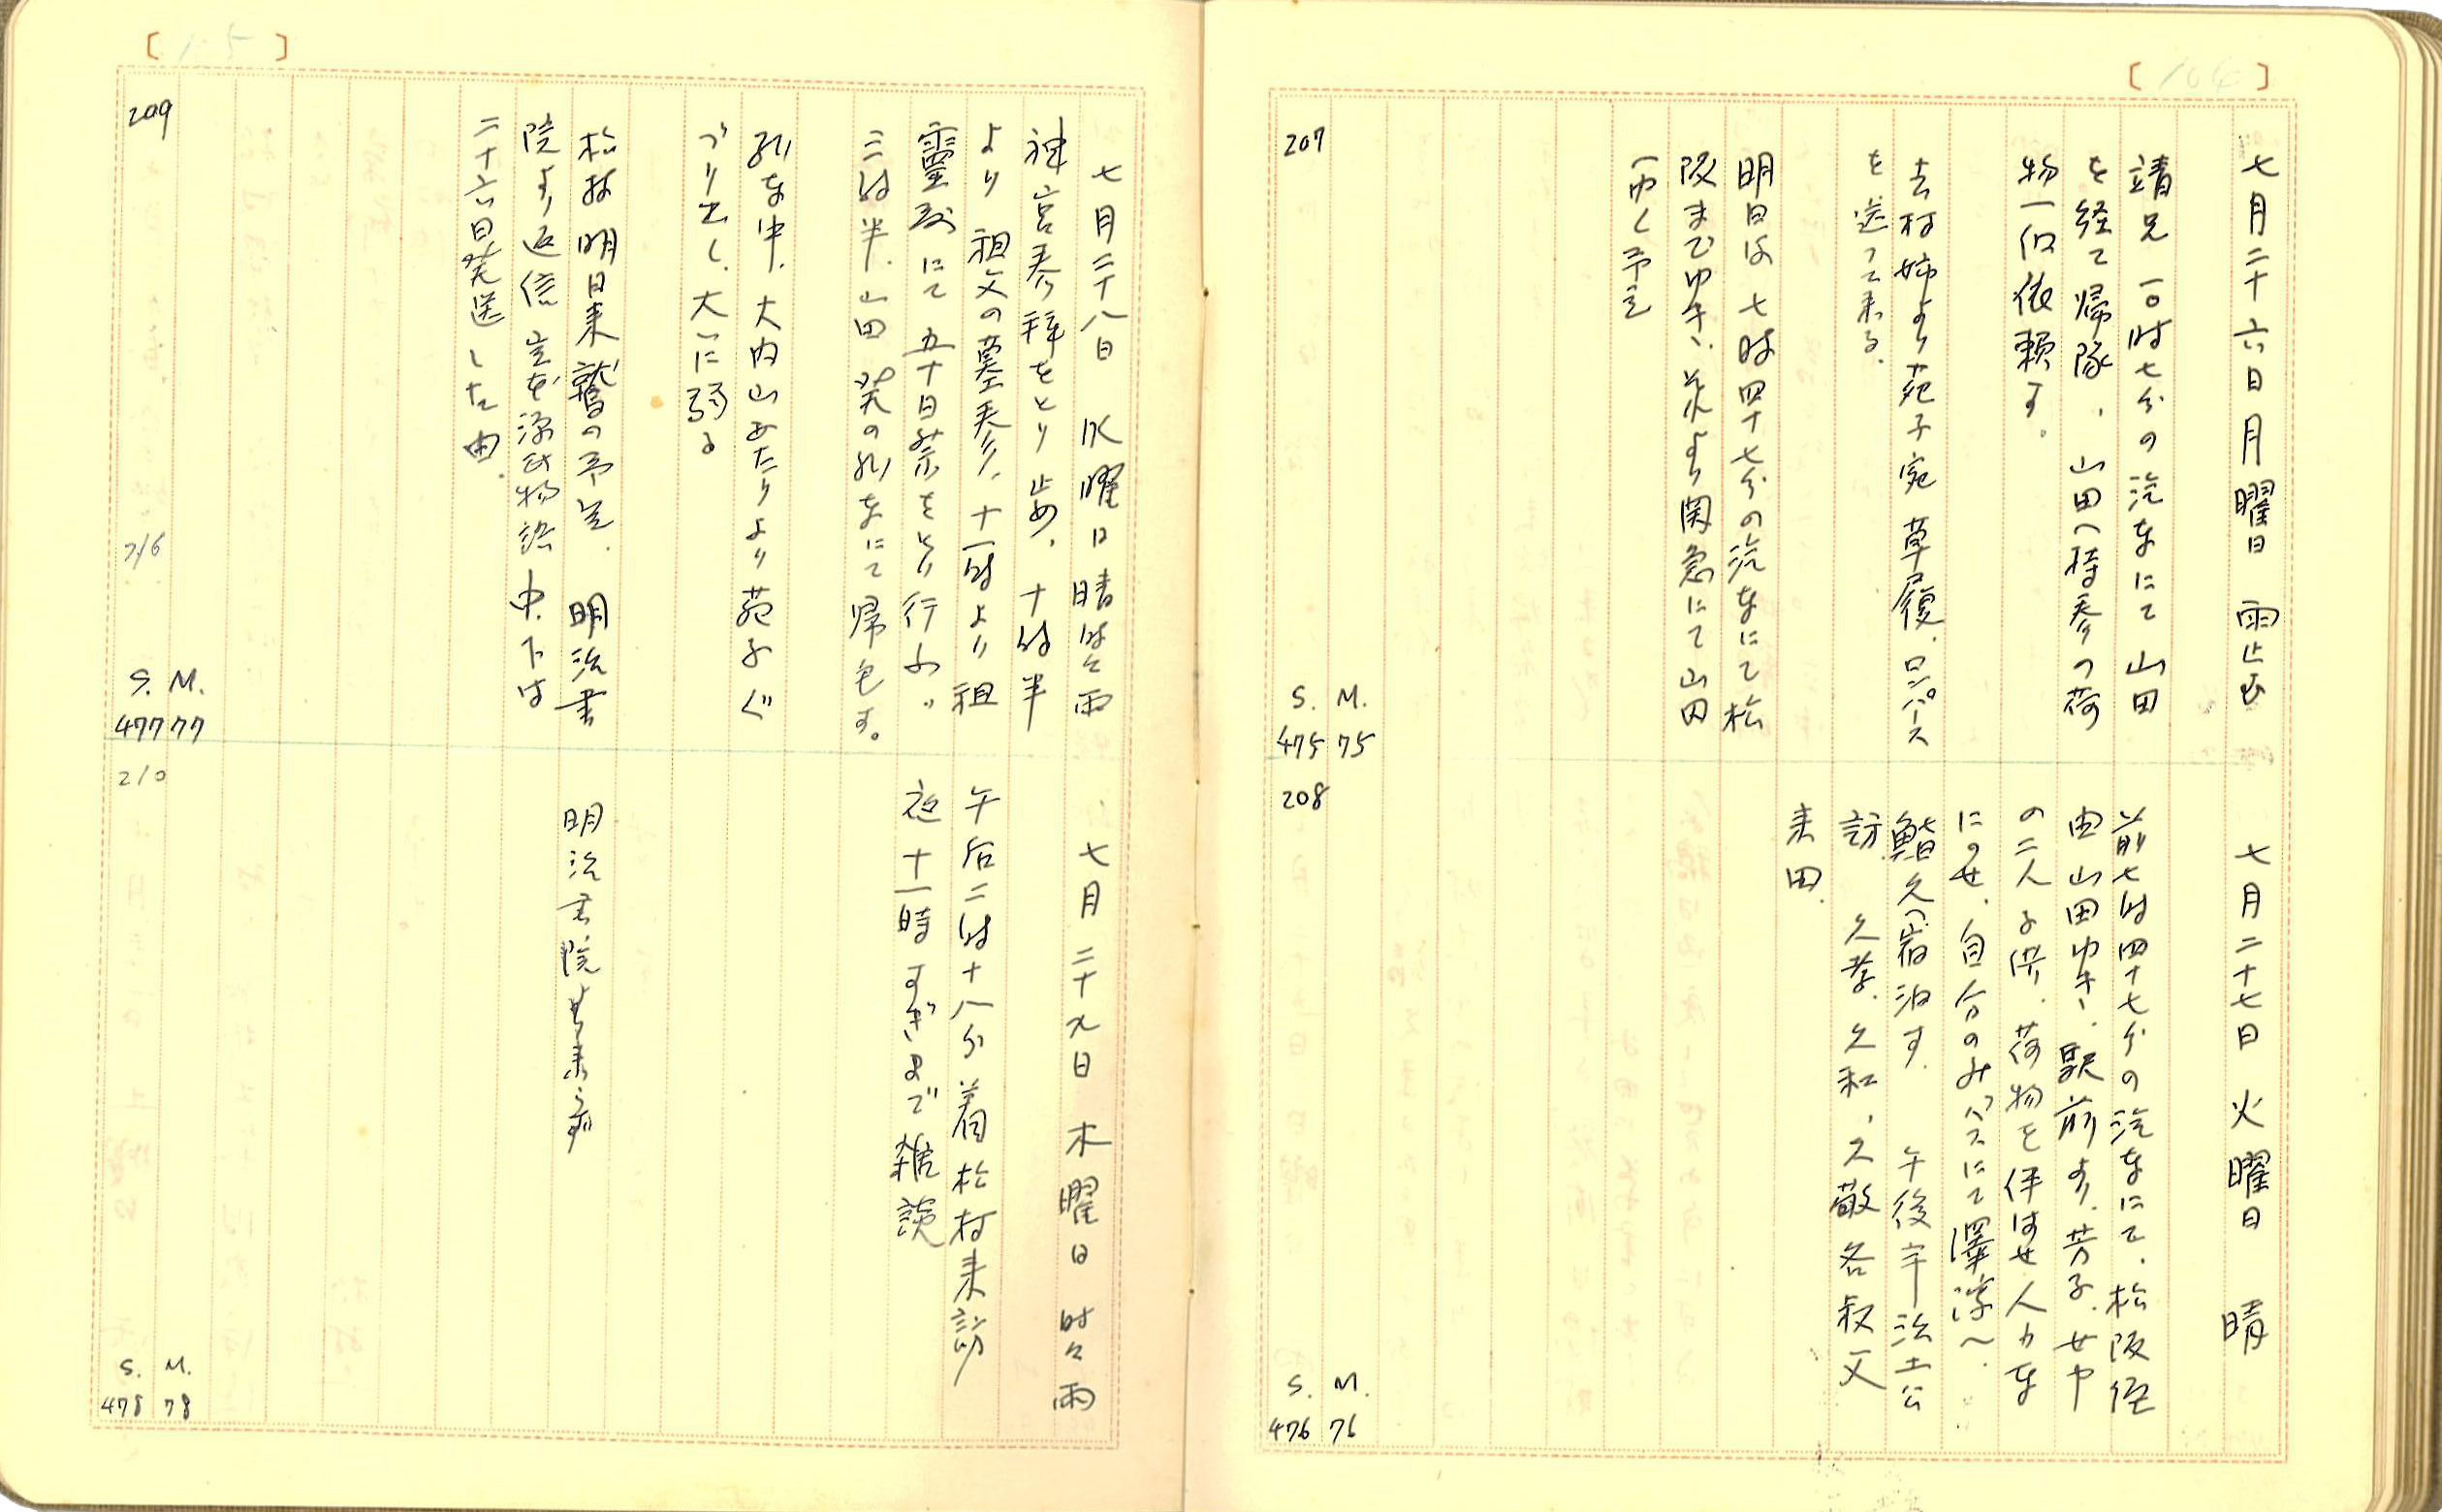 [104]
七月二十六日 月曜日 雨止む
靖兄 一〇時七分の汽車にて山田
を経て帰隊、山田へ持参の荷
物一個依頼す。
去村姉より苑子宛 草履、ロンパース
を送って来る。
明日は七時四十七分の汽車にて松
阪まで申き、それより関急にて山田
へゆく予定
207
S. M.
475 75
208
七月二十七日 火曜日 晴
前七時四十七分の汽車にて、松阪経
由山田ゆき、駅前より芳子、女中
の二人子供、荷物を伴はせ人力車
にのせ、自分のみバスにて澤潟へ。
鮨久へ宿泊す。 午後宇治土公
訪 久孝、久和、久敬各叔父
来田。
S. M.
476 76
[1 5]
七月二十八日 水曜日 晴時々雨
神宮参拝をとり止め、十時半
より祖父の墓参、十一時より祖
霊殿にて五十日祭をとり行ふ。
三時半、山田発の列車にて帰宅す。
列車中、大内山あたりより苑子ぐ
づり出し、大いに弱る
松村明日来鷲の予定、明治書
院より返信 宣長源氏物語 中、下は
二十六日発送した由。
209
7/6
S. M.
477 77
210
七月二十九日 木曜日 時々雨
午后二時十八分着松村来訪
夜十一時すぎまで雑談
明治書院
S. M.
478 78